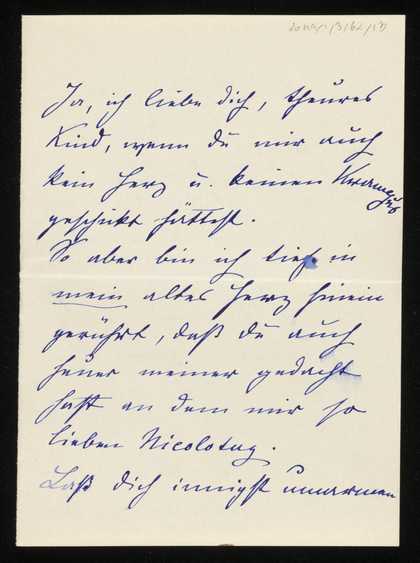 Ja, ich liebe dich, theures
Kind, wenn du mir auch
kein Herz u. keinen
geschickt hättest.
So aber bin ich tief in
mein altes Herz hinein
gerührt, daß du auch
heuer meiner gedacht
hast an dem mir so
lieben Nicolotag.
Laß dich innigst umarmen